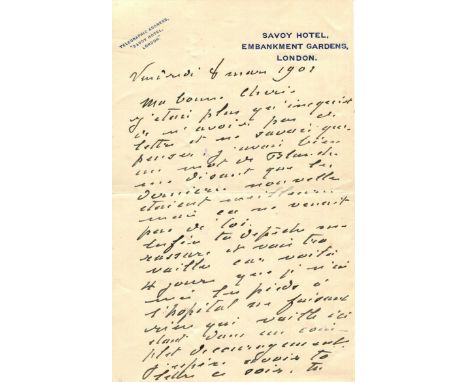 TELEGRAPHIC ADDRESS,
"SAVOY HOTEL,
LONDON."
SAVOY HOTEL,
EMBANKMENT GARDENS,
LONDON.
Vendredi 8 mars 1901
Ma bonne Cherie
j'étais plus qu'inquiet
de n'avoir pas de
lettre et ne savais que
penser, j'avais bien
un mot de Blanche
me disant que les
dernières nouvelles
étaient meilleures
mais ca ne venait
pas de toi.
Enfin ta dépêche me
rassure et vais tra
vailler car voilà
4 jours que je n'ai
mis les pieds à
l'hopital ne faisant
rien qui vaille ici
étant dans un com
plet découragement
j'espère avoir ta
lettre ce soir, tu